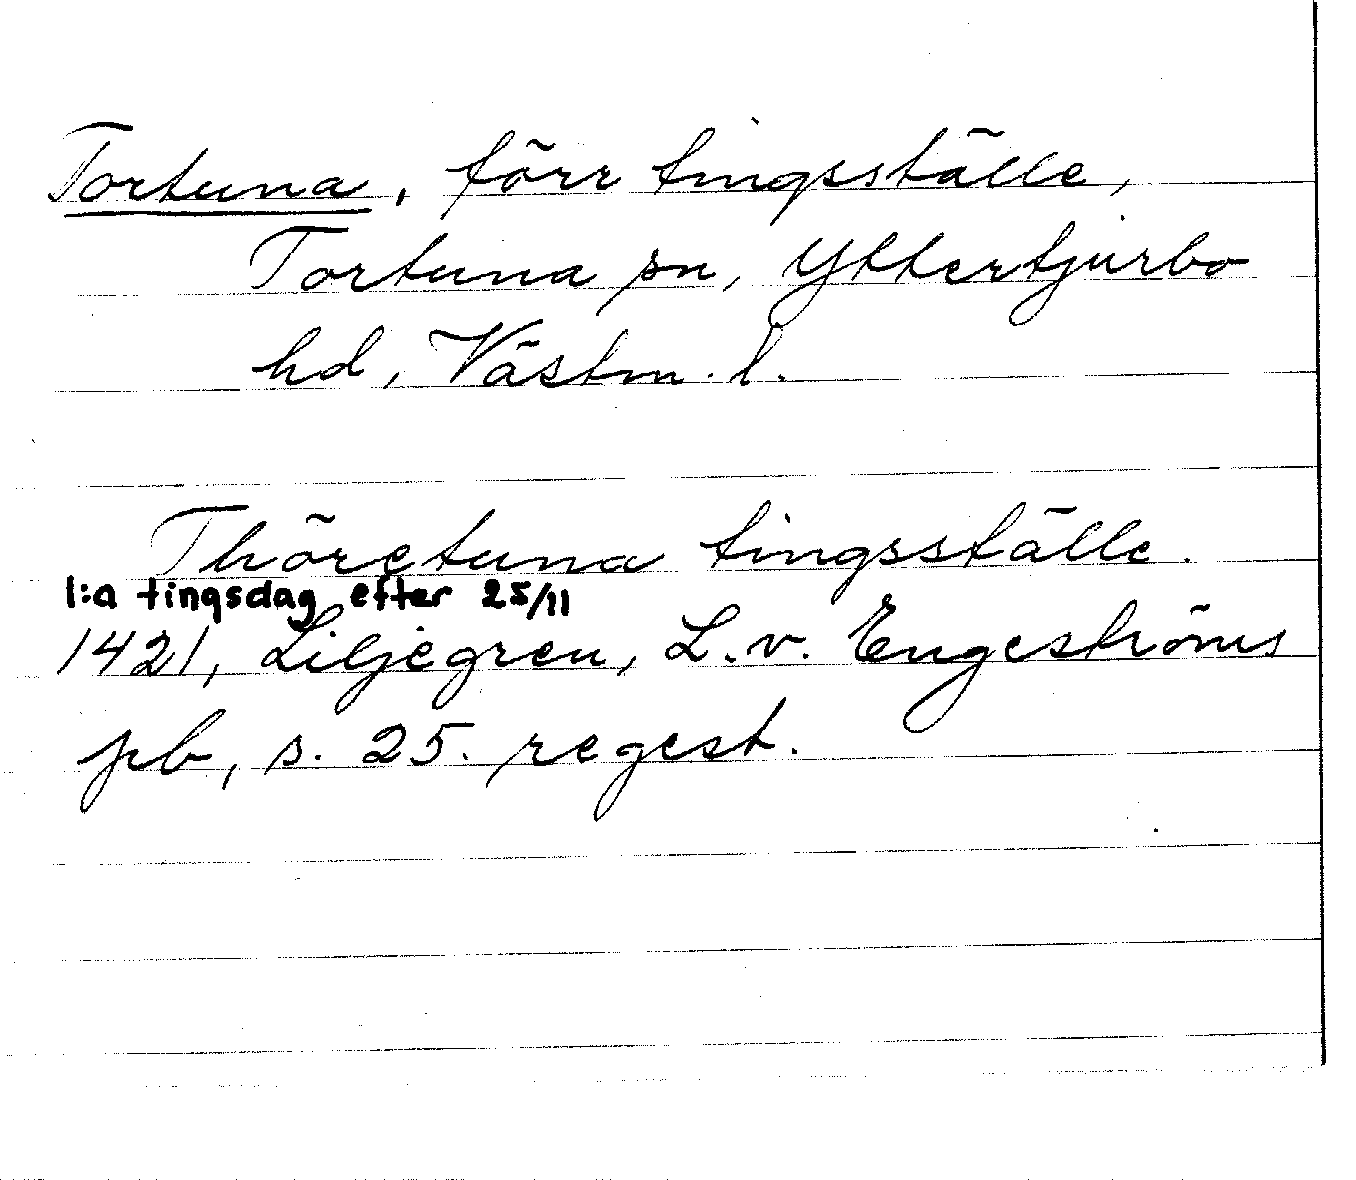 Tortuna, förr tingsställe,
Tortuna sn, Yttertjurbo
hd, Västm. l.
Thöretuna tingsställe.
1:a tingsdag efter 25/11
1421, Liljegren, L. v. Engeströms
pb, s. 25. regest.